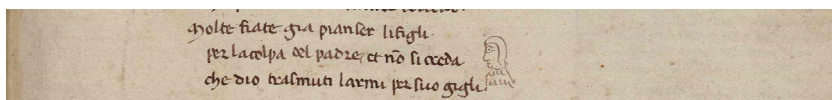 Molte fiate gia pianser lifigli
per lacolpa del padre, et nõ si creda
che dio trasmuti larmi per suo gigli.